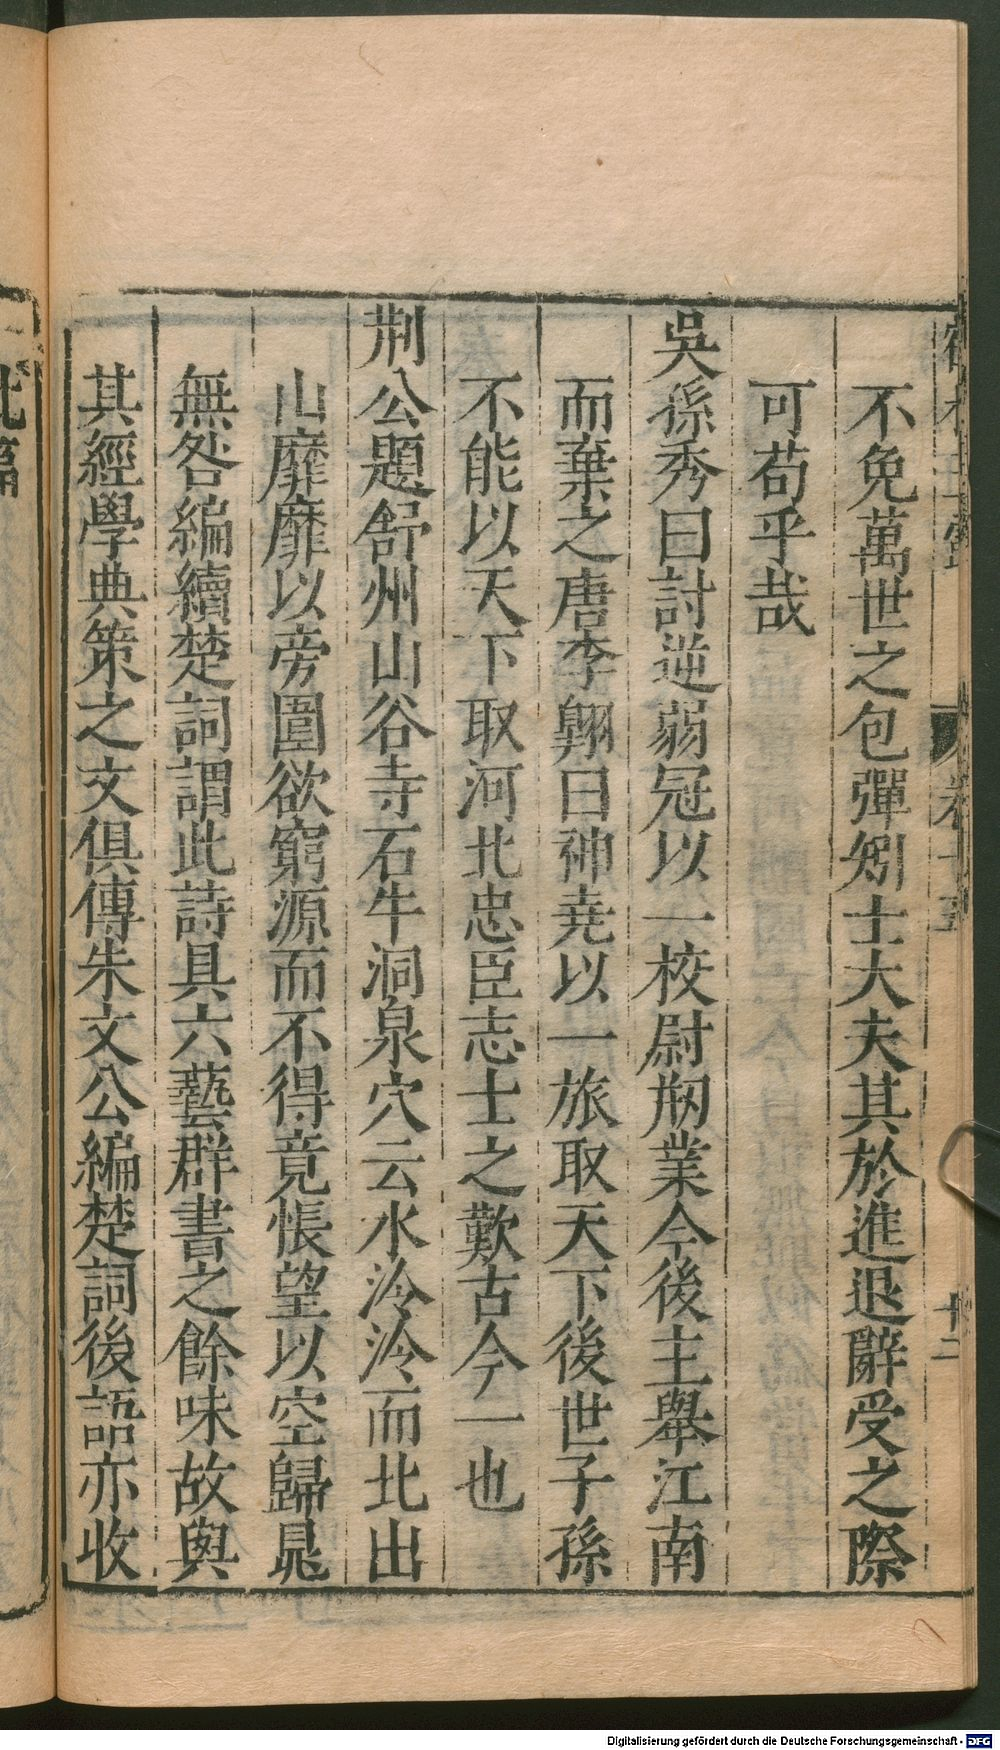 不免萬世之包彈矧士大夫其於進退辭受之際
可苟乎哉
吳孫秀曰討逆弱冠以一校尉刱業今後主舉江南
而棄之唐李翺曰神堯以一旅取天下後世子孫
不能以天下取河北忠臣志士之歎古今一也
荆公題舒州山谷寺石牛洞泉穴云水泠泠而北出
山靡靡以旁圍欲窮源而不得竟悵望以空歸晁
無咎編續楚詞謂此詩具六藝群書之餘味故與
其經學典策之文俱傳朱文公編楚詞後語亦收
此篇
Digitalisierung gefördert durch die Deutsche Forschungsgemeinschaft - DFG